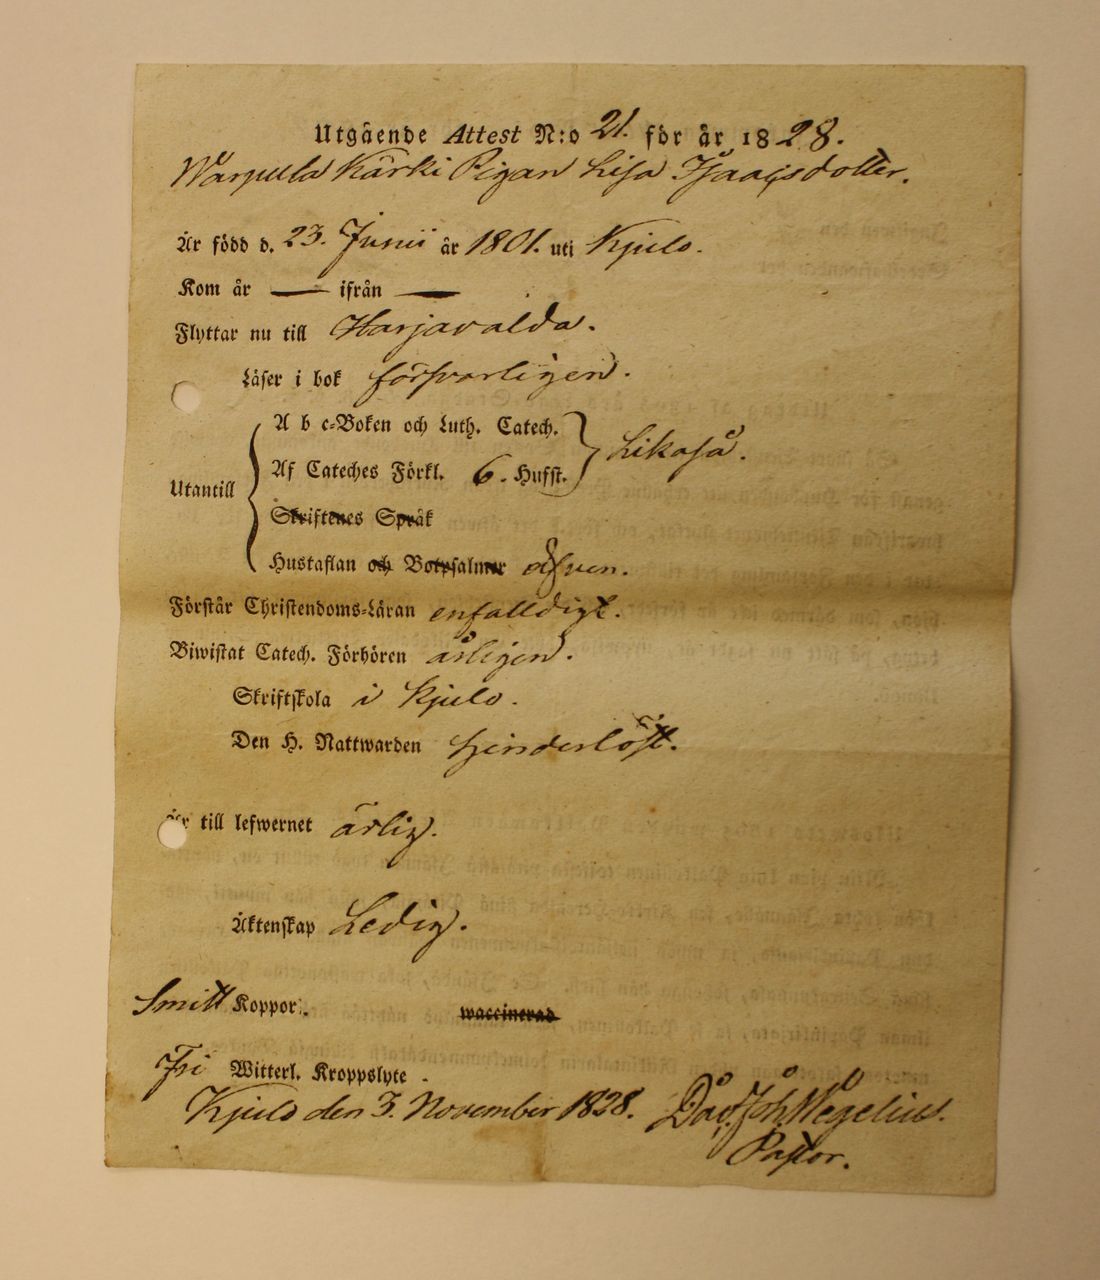 Utgående Attest N:o 21. för år 1828.
Warpula Kärki Pigan Lisa Isaacsdotter.
Är född d. 23. Junii år 1801. uti Kjulo.
Kom år — ifrån —
Flyttar nu till Harjavalda.
Läser i bok försvarligen.
A b c-Boken och Luth. Catech.
Af Cateches Förkl. 6. Hufst. Likaså.
Utantill
Skriftenes Språk
Hustaflan och Botpsalmer äfven.
Förstår Christendoms-Läran enfalldigt.
Biwistat Catech. Förhören årligen.
Skriftskola i Kjulo.
Den H. Nattwarden hinderlöst.
Är till lefwernet ärlig.
Äktenskap Ledig.
Smitt Koppor. waccinerad
Fri Witterl. Kroppslyte.
Kjulo den 3. November 1828. Dav. Joh. Wegelius.
Pastor.